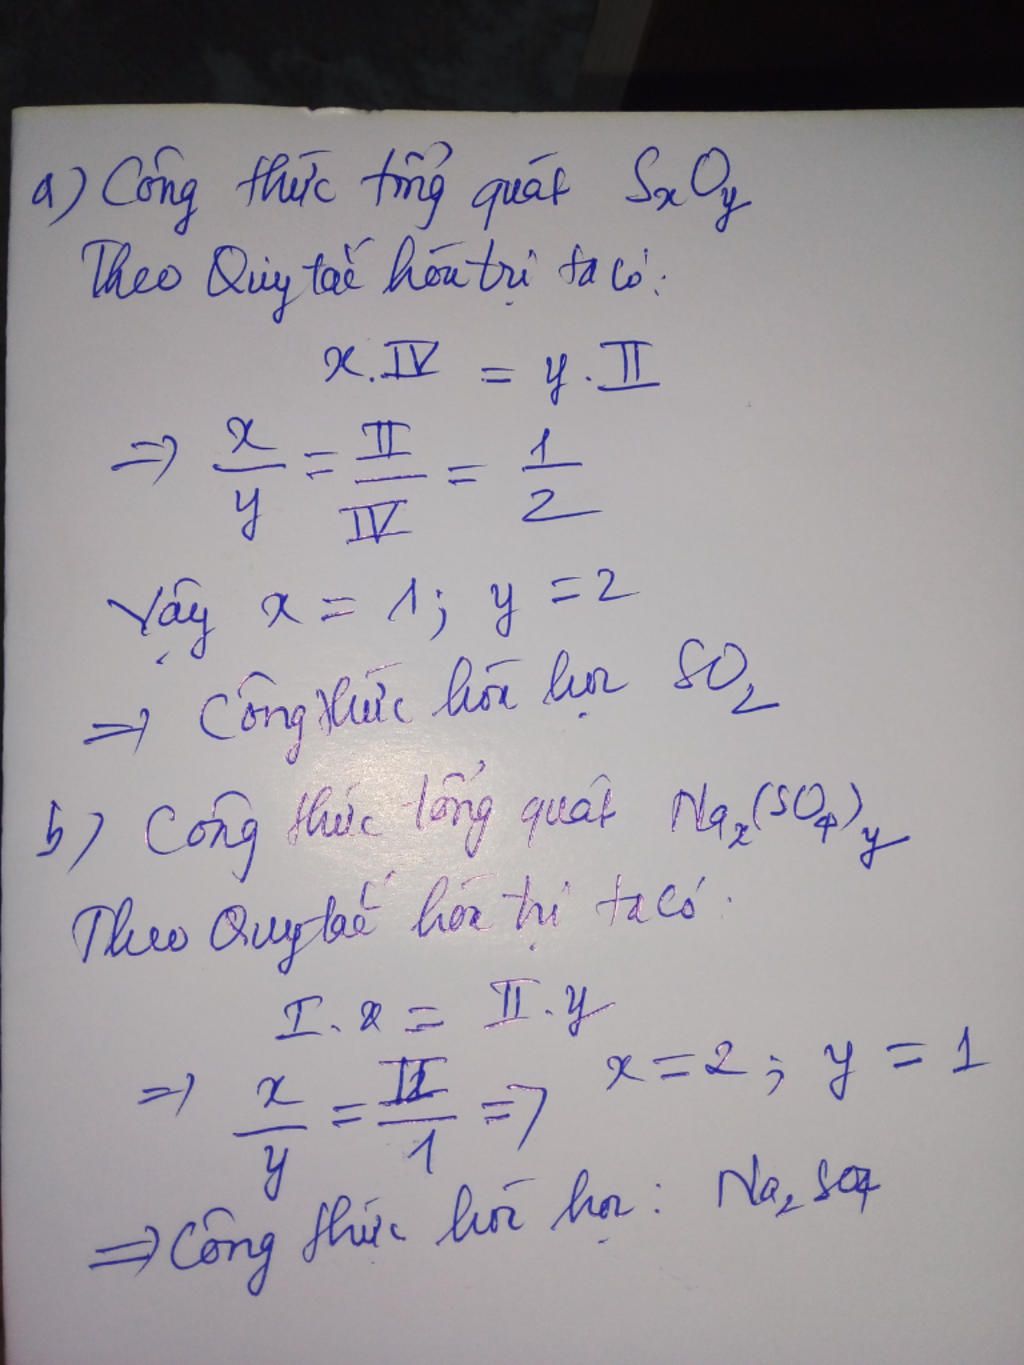 a) Công thức tổng quát SxOy
Theo Quy tắc hóa trị ta có:
x.IV = y.II
=> x/y = II/IV = 1/2
Vậy x = 1; y = 2
=> Công thức hóa học SO2
b) Công thức tổng quát Nax(SO4)y
Theo Quy tắc hóa trị ta có:
I.x = II.y
=> x/y = II/1 => x = 2; y = 1
=> Công thức hóa học: Na2SO4